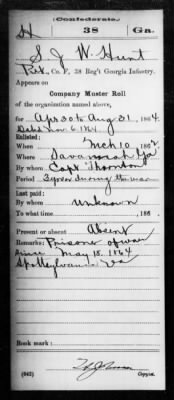 Confederate.
H 38 Ga.
S. J. W. Hunt
Pvt., Co. F, 38 Reg't Georgia Infantry.
Appears on
Company Muster Roll
of the organization named above,
for Apr 30 to Aug 31, 1864.
Dated Nov 6, 1864
Enlisted:
When Mch 10, 1862
Where Savannah Ga
By whom Capt Thornton
Period 3 years during the war
Last paid:
By whom unknown
To what time , 186 .
Present or absent Absent
Remarks: Prisoner of war
since May 18, 1864
Spottsylvania Va
Book mark:
(642) Copyist.